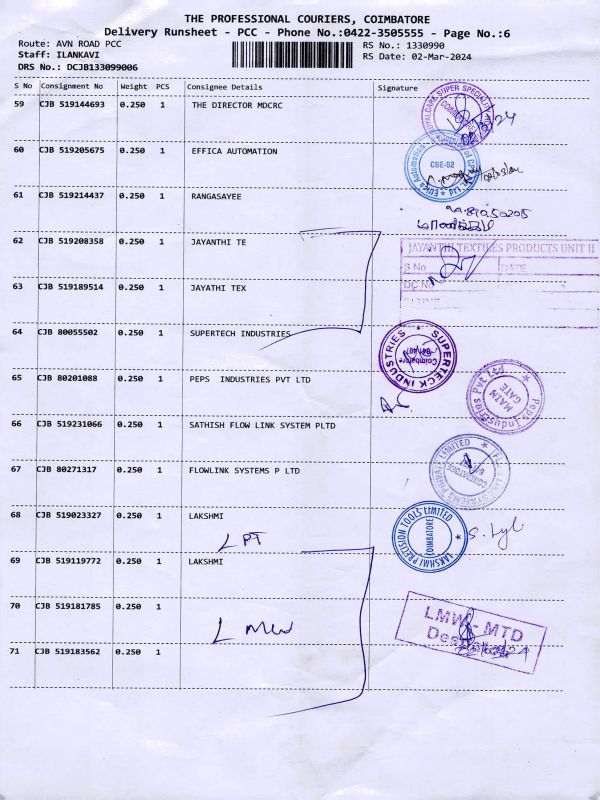 THE PROFESSIONAL COURIERS, COIMBATORE
Delivery Runsheet - PCC - Phone No.:0422-3505555 - Page No.:6
Route: AVN ROAD PCC
RS No.: 1330990
Staff: ILANKAVI
RS Date: 02-Mar-2024
DRS No.: DCJB133099006
S No Consignment No Weight PCS Consignee Details Signature
59 CJB 519144693 0.250 1 THE DIRECTOR MDCRC
60 CJB 519205675 0.250 1 EFFICA AUTOMATION
CBE-02
61 CJB 519214437 0.250 1 RANGASAYEE
62 CJB 519208358 0.250 1 JAYANTHI TE
JAYANTHI TEXTILES PRODUCTS UNIT II
S No DATE
DC No
63 CJB 519189514 0.250 1 JAYATHI TEX
64 CJB 80055502 0.250 1 SUPERTECH INDUSTRIES
SUPERTECK INDUSTRIES
Coimbatore
65 CJB 80201088 0.250 1 PEPS INDUSTRIES PVT LTD
Peps Industries Pvt Ltd
MAIN GATE
66 CJB 519231066 0.250 1 SATHISH FLOW LINK SYSTEM PLTD
67 CJB 80271317 0.250 1 FLOWLINK SYSTEMS P LTD
68 CJB 519023327 0.250 1 LAKSHMI
LPT
LAKSHMI PRECISION TOOLS LIMITED
COIMBATORE
69 CJB 519119772 0.250 1 LAKSHMI
70 CJB 519181785 0.250 1
LMW
LMW - MTD
71 CJB 519183562 0.250 1